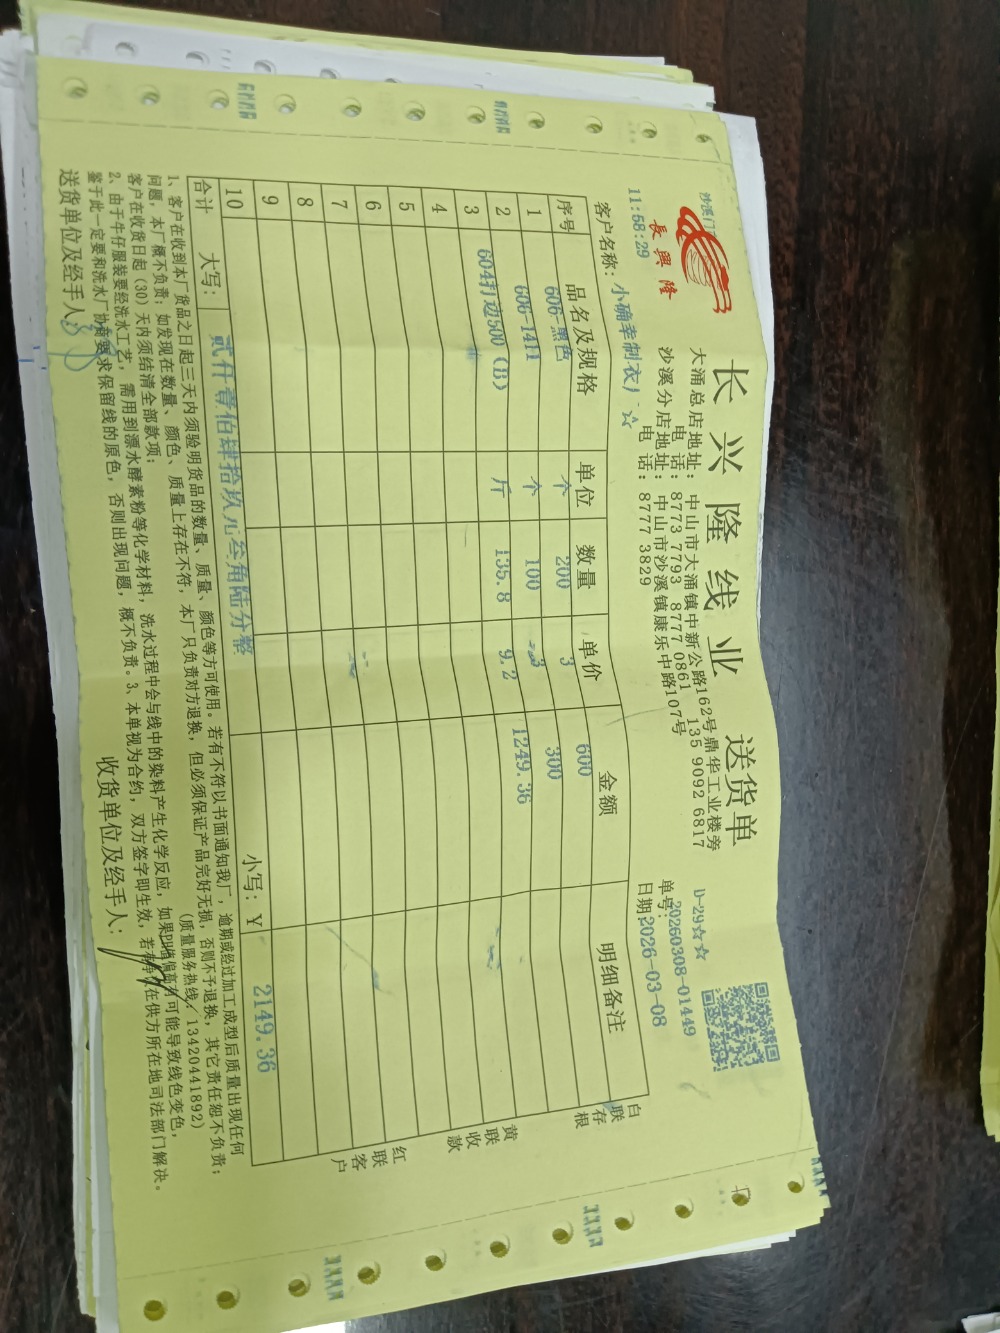 沙溪门
長興隆
长兴隆线业 送货单
大涌总店地址：中山市大涌镇中新公路162号鼎华工业楼旁
电话：8773 7793 8777 0861 135 9092 6817
沙溪分店地址：中山市沙溪镇康乐中路107号
电话：8777 3829
D-29☆☆
单号：20260308-01449
日期：2026-03-08
11:58:29
客户名称：小确幸制衣厂☆
序号 品名及规格 单位 数量 单价 金额 明细备注
1 606-黑色 个 200 3 600
2 606-1411 个 100 3 300
3 604打边500（B） 斤 135.8 9.2 1249.36
4
5
6
7
8
9
10
合计 大写：贰仟壹佰肆拾玖元叁角陆分整 小写：¥ 2149.36
白联存根
黄联收款
红联客户
1、客户在收到本厂货品之日起三天内须验明货品的数量、质量、颜色等方可使用。若有不符以书面通知我厂，逾期或经过加工成型后质量出现任何
问题，本厂概不负责；如发现在数量、颜色、质量上存在不符，本厂只负责对方退换，但必须保证产品完好无损，否则不予退换，其它责任恕不负责；
客户在收货日起（30）天内须结清全部款项；
（质量服务热线：13420441892）
2、由于牛仔服装要经洗水工艺，需用到漂水酵素粉等化学材料，洗水过程中会与线中的染料产生化学反应，如果PH值偏高有可能导致线色变色，
鉴于此一定要和洗水厂协商要求保留线的原色，否则出现问题，概不负责。3、本单视为合约，双方签字即生效，若有争 在供方所在地司法部门解决。
送货单位及经手人：
收货单位及经手人：